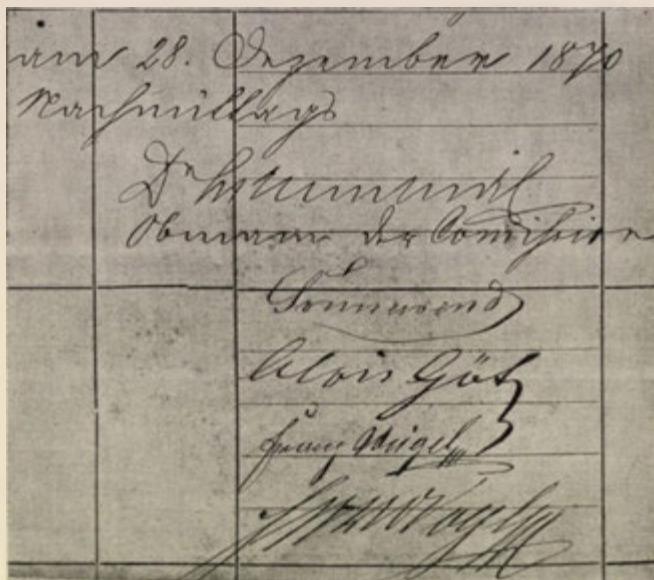 am 28. Dezember 1870
Nachmittags
Dr
Obmann der Comission
Sonnewend
Alois Götz
Franz Weigel
Vogl